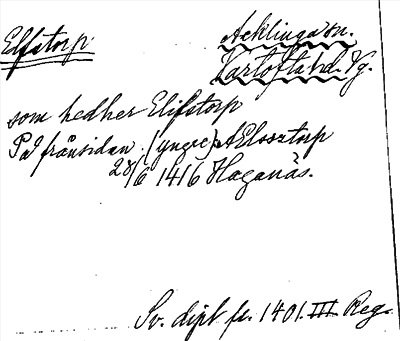 Elfstorp
Acklinga sn.
Kartofta hd. Vg.
som hedher Elifstorp
På frånsidan (yngre) AElosztorp
28/6 1416 Haganäs.
Sv. dipl fr. 1401. III Reg.